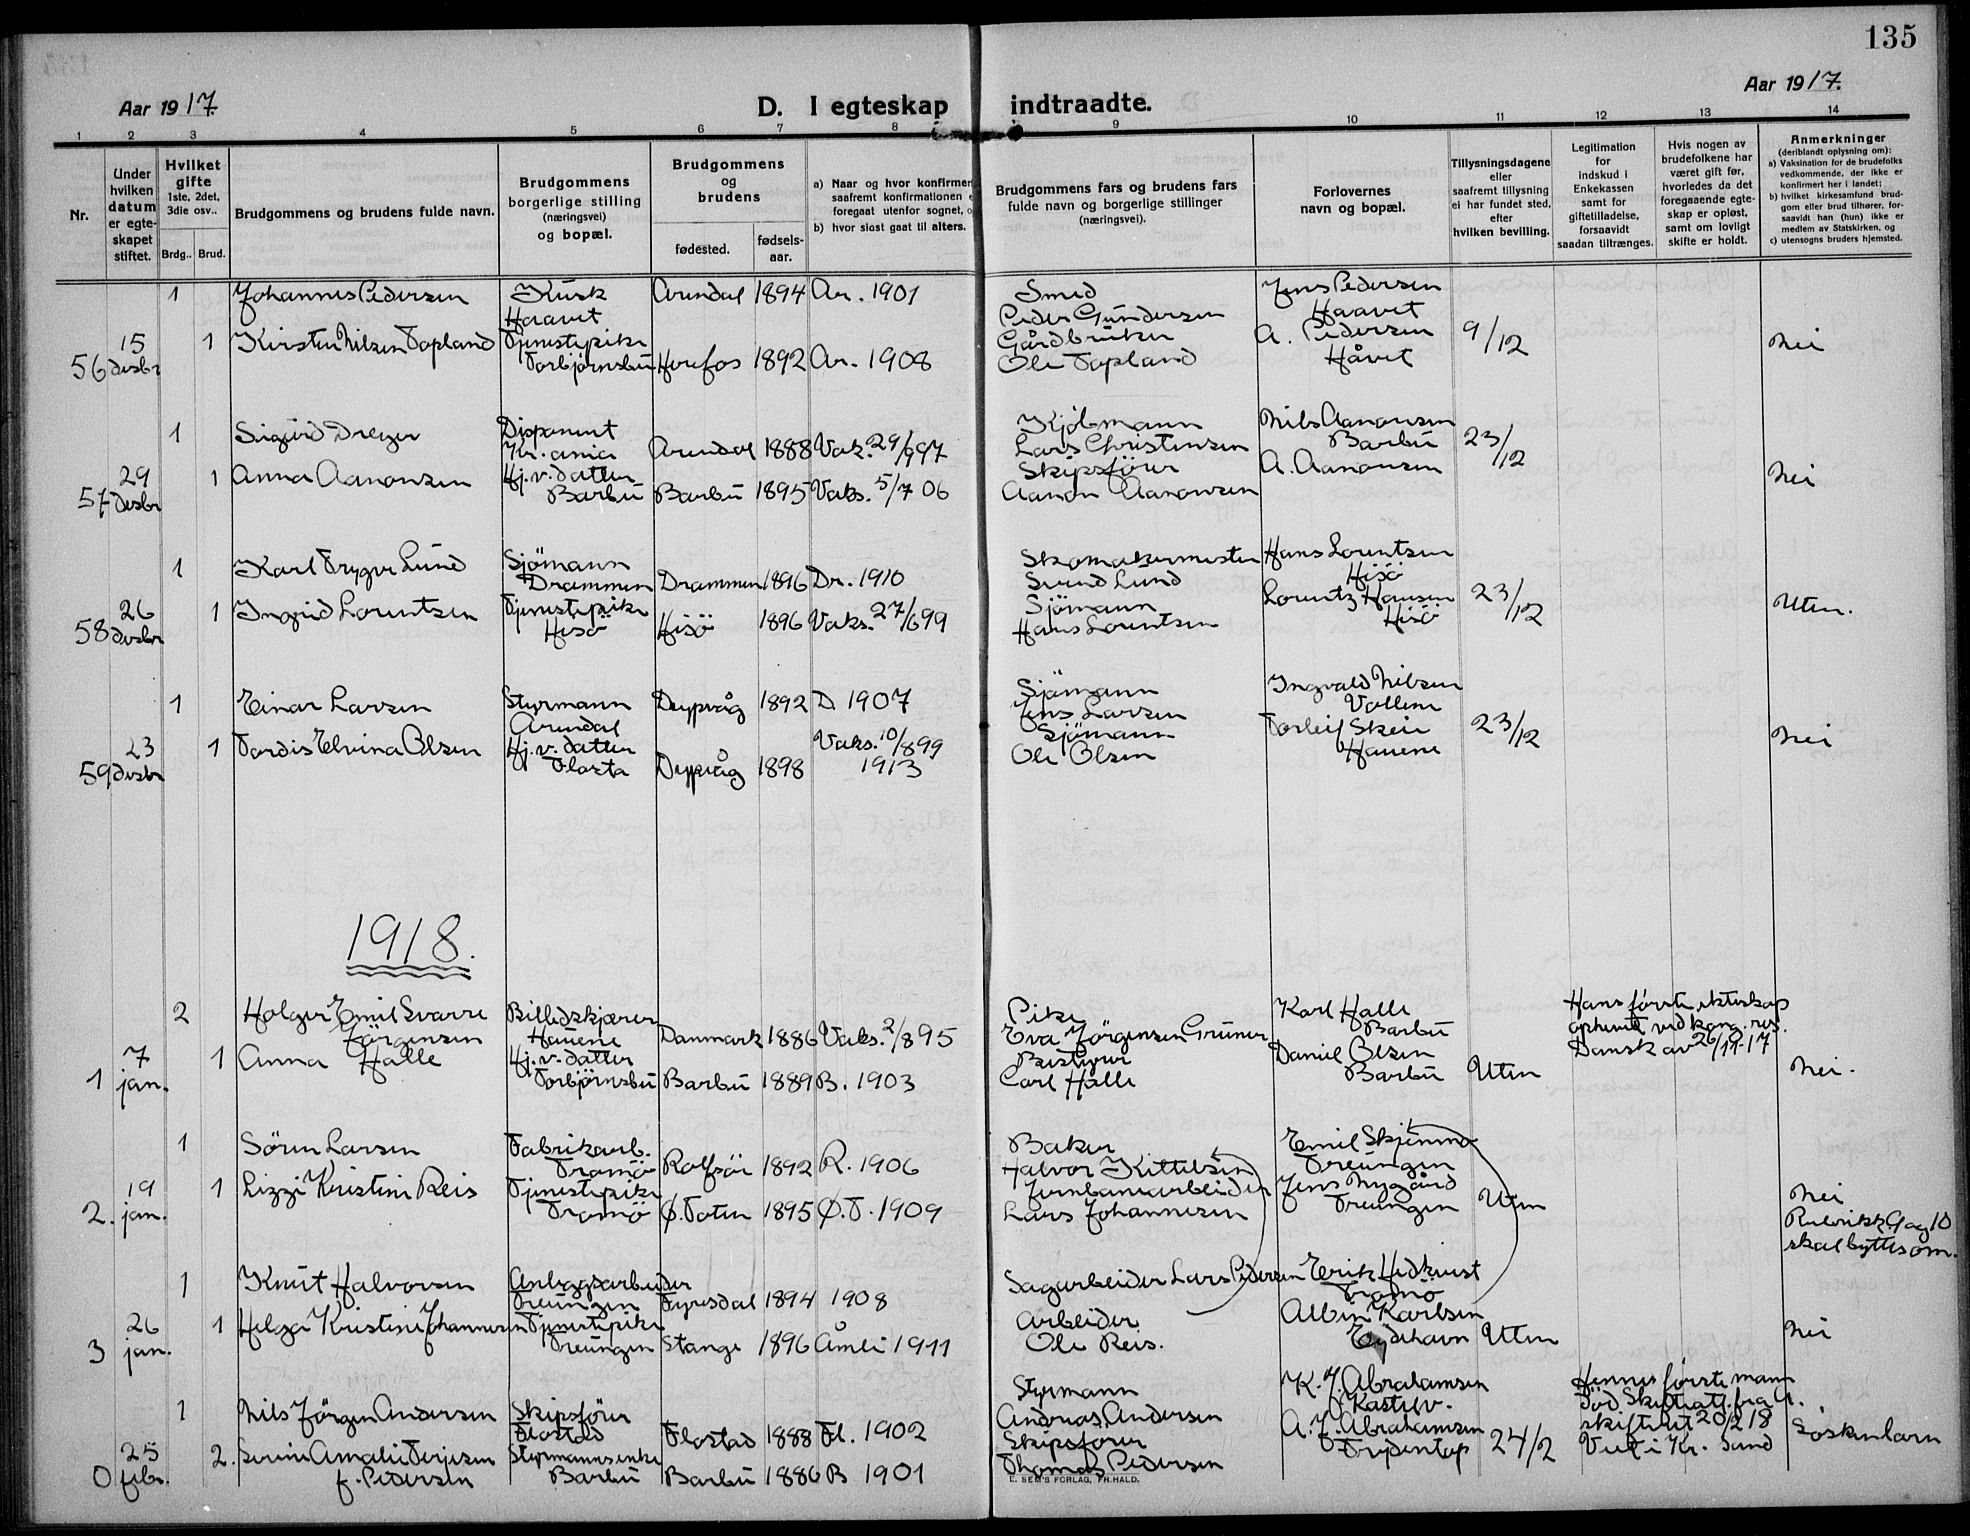 135
Aar 1917.
D. I egteskap indtraadte.
Aar 1917.
1 2 3 4 5 6 7. 8 9 10 11 12 13 14
Nr.
Under hvilken datum er egte-skapet stiftet.
Hvilket gifte 1ste, 2det, 3die osv..
Brdg.. Brud.
Brudgommens og brudens fulde navn.
Brudgommens borgerlige stilling (næringsvei) og bopæl.
Brudgommens og brudens
fødested.
fødsels-aar.
a) Naar og hvor konfirmer
saafremt konfirmationen e
foregaat utenfor sognet, o
b) hvor sidst gaat til alters.
Brudgommens fars og brudens fars
fulde navn og borgerlige stillinger
(næringsvei).
Forlovernes
navn og bopæl.
Tillysningsdagene
eller
saafremt tillysning
ei har fundet sted,
efter
hvilken bevilling.
Legitimation
for
indskud i
Enkekassen
samt for
giftetilladelse,
forsaavidt
saadan tiltrænges.
Hvis nogen av
brudefolkene har
været gift før,
hvorledes da det
foregaaende egte-
skap er opløst,
samt om lovligt
skifte er holdt.
Anmerkninger
(deriblandt oplysning om):
a) Vaksination for de brudefolks
vedkommende, der ikke er
konfirmert her i landet;
b) hvilket kirkesamfund brud-
gom eller brud tilhører, for-
saavidt han (hun) ikke er
medlem av Statskirken, og
c) utensogns bruders hjemsted.
1 Johannes Pedersen Kusk Haavet Arendal 1894 Ar. 1901 Smed Peder Gundersen Jens Pedersen Haavet
56 15 desbr 1 Kirsten Nilsen Topland Tjenestepike Torbjørnsbu Herefos 1892 Ar. 1908 Gårdbruker Ole Topland A. Pedersen Håvet 9/12 Nei
1 Sigurd Dreyer Disponent Kr.ania Arendal 1888 Vak. 29/9 97 Kjöbmann Lars Christensen Nils Aanonsen Barbu 23/12
57 29 desbr 1 Anna Aanonsen Hj.v. datter Barbu Barbu 1895 Vaks. 5/7 06 Skipsförer Aanon Aanonsen A. Aanonsen Nei
1 Karl Trygve Lund Sjömann Drammen Drammen 1896 Dr. 1910 Skomakermester Svend Lund Hans Lorentsen Hisö
58 26 desbr 1 Ingrid Lorentsen Tjenestepike Hisö Hisö 1896 Vaks. 27/6 99 Sjömann Hans Lorentsen Lorentz Hansen Hisö 23/12 Uten.
1 Einar Larsen Styrmann Arendal Dypvåg 1892 D. 1907 Sjömann Jens Larsen Ingvald Nilsen Vollene
59 23 desbr 1 Tordis Elvina Olsen Hj.v. datter Flosta Dypvåg 1898 Vaks. 10/8 99 1913 Sjömann Ole Olsen Torleif Skeie Hauene 23/12 Nei
1918.
2 Holger Emil Svarre Jörgensen Billedskjærer Hauene Danmark 1886 Vaks. 2/8 95 Pike Eva Jörgensen Grüner Karl Halle Barbu Hans förste ekteskap ophevet ved kong. res. Dansk av 26/11-17
1 7 jan. 1 Anna Halle Hj.v. datter Torbjörnsbu Barbu 1889 B. 1903 Bestyrer Carl Halle Daniel Olsen Barbu Uten Nei.
1 Sören Larsen Fabrikarb. Tromö Rolfsör 1892 R. 1906 Baker Halvor Kittelsen Emil Skjenmo Treungen
2. 19 jan. 1 Lizzi Kristine Reis Tjenestepike Tromö Ø. Toten 1895 Ø.T. 1909 Jernbanearbeider Lars Johannesen Jens Nygård Treungen Uten Nei
Rubrikk 9 og 10
skal byttes om.
1 Knut Halvorsen Anleggsarbeider Treungen Fyresdal 1894 1908 Sagarbeider Lars Pedersen Erik Hedkvist Tromö
3 26 jan. 1 Helga Kristine Johannesen Tjenestepike Treungen Stange 1896 Åmli 1911 Arbeider Ole Reis. Albin Karlsen Eydehavn Uten Nei
1 Nils Jörgen Andersen Skipsförer Flostad Flostad 1888 Fl. 1902 Styrmann Andreas Andersen K. J. Abrahamsen Kastelv. Hennes förste mann död. Skifteatt. fra A. skifteret 20/2 18
0 25 febr. 2. Serine Amalie Terjesen f. Pedersen Styrmannsenke Barbu Barbu 1886 B 1901 Skipsförer Thomas Pedersen A. J. Abrahamsen Frydentop 24/2 Viet i Kr. Sand Söskenbarn
E. SEM'S FORLAG, FR.HALD.